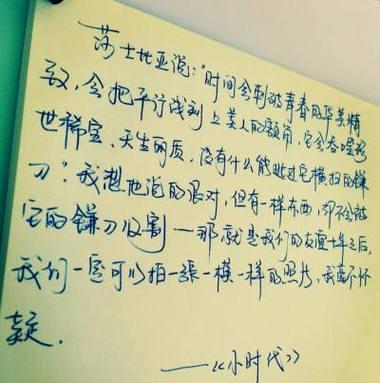 莎士比亚说:“时间会刺破青春的华美精
致,会把平行线刻上美人的额角,它会吞噬稀
世稀宝、天生丽质,没有什么能逃过它横扫的镰
刀”。我想他说的很对,但有一样东西,却不会被
它的镰刀收割——那就是我们的友谊十年之后,
我们一定可以拍一张一模一样的照片,我毫不怀
疑.
——《小时代》